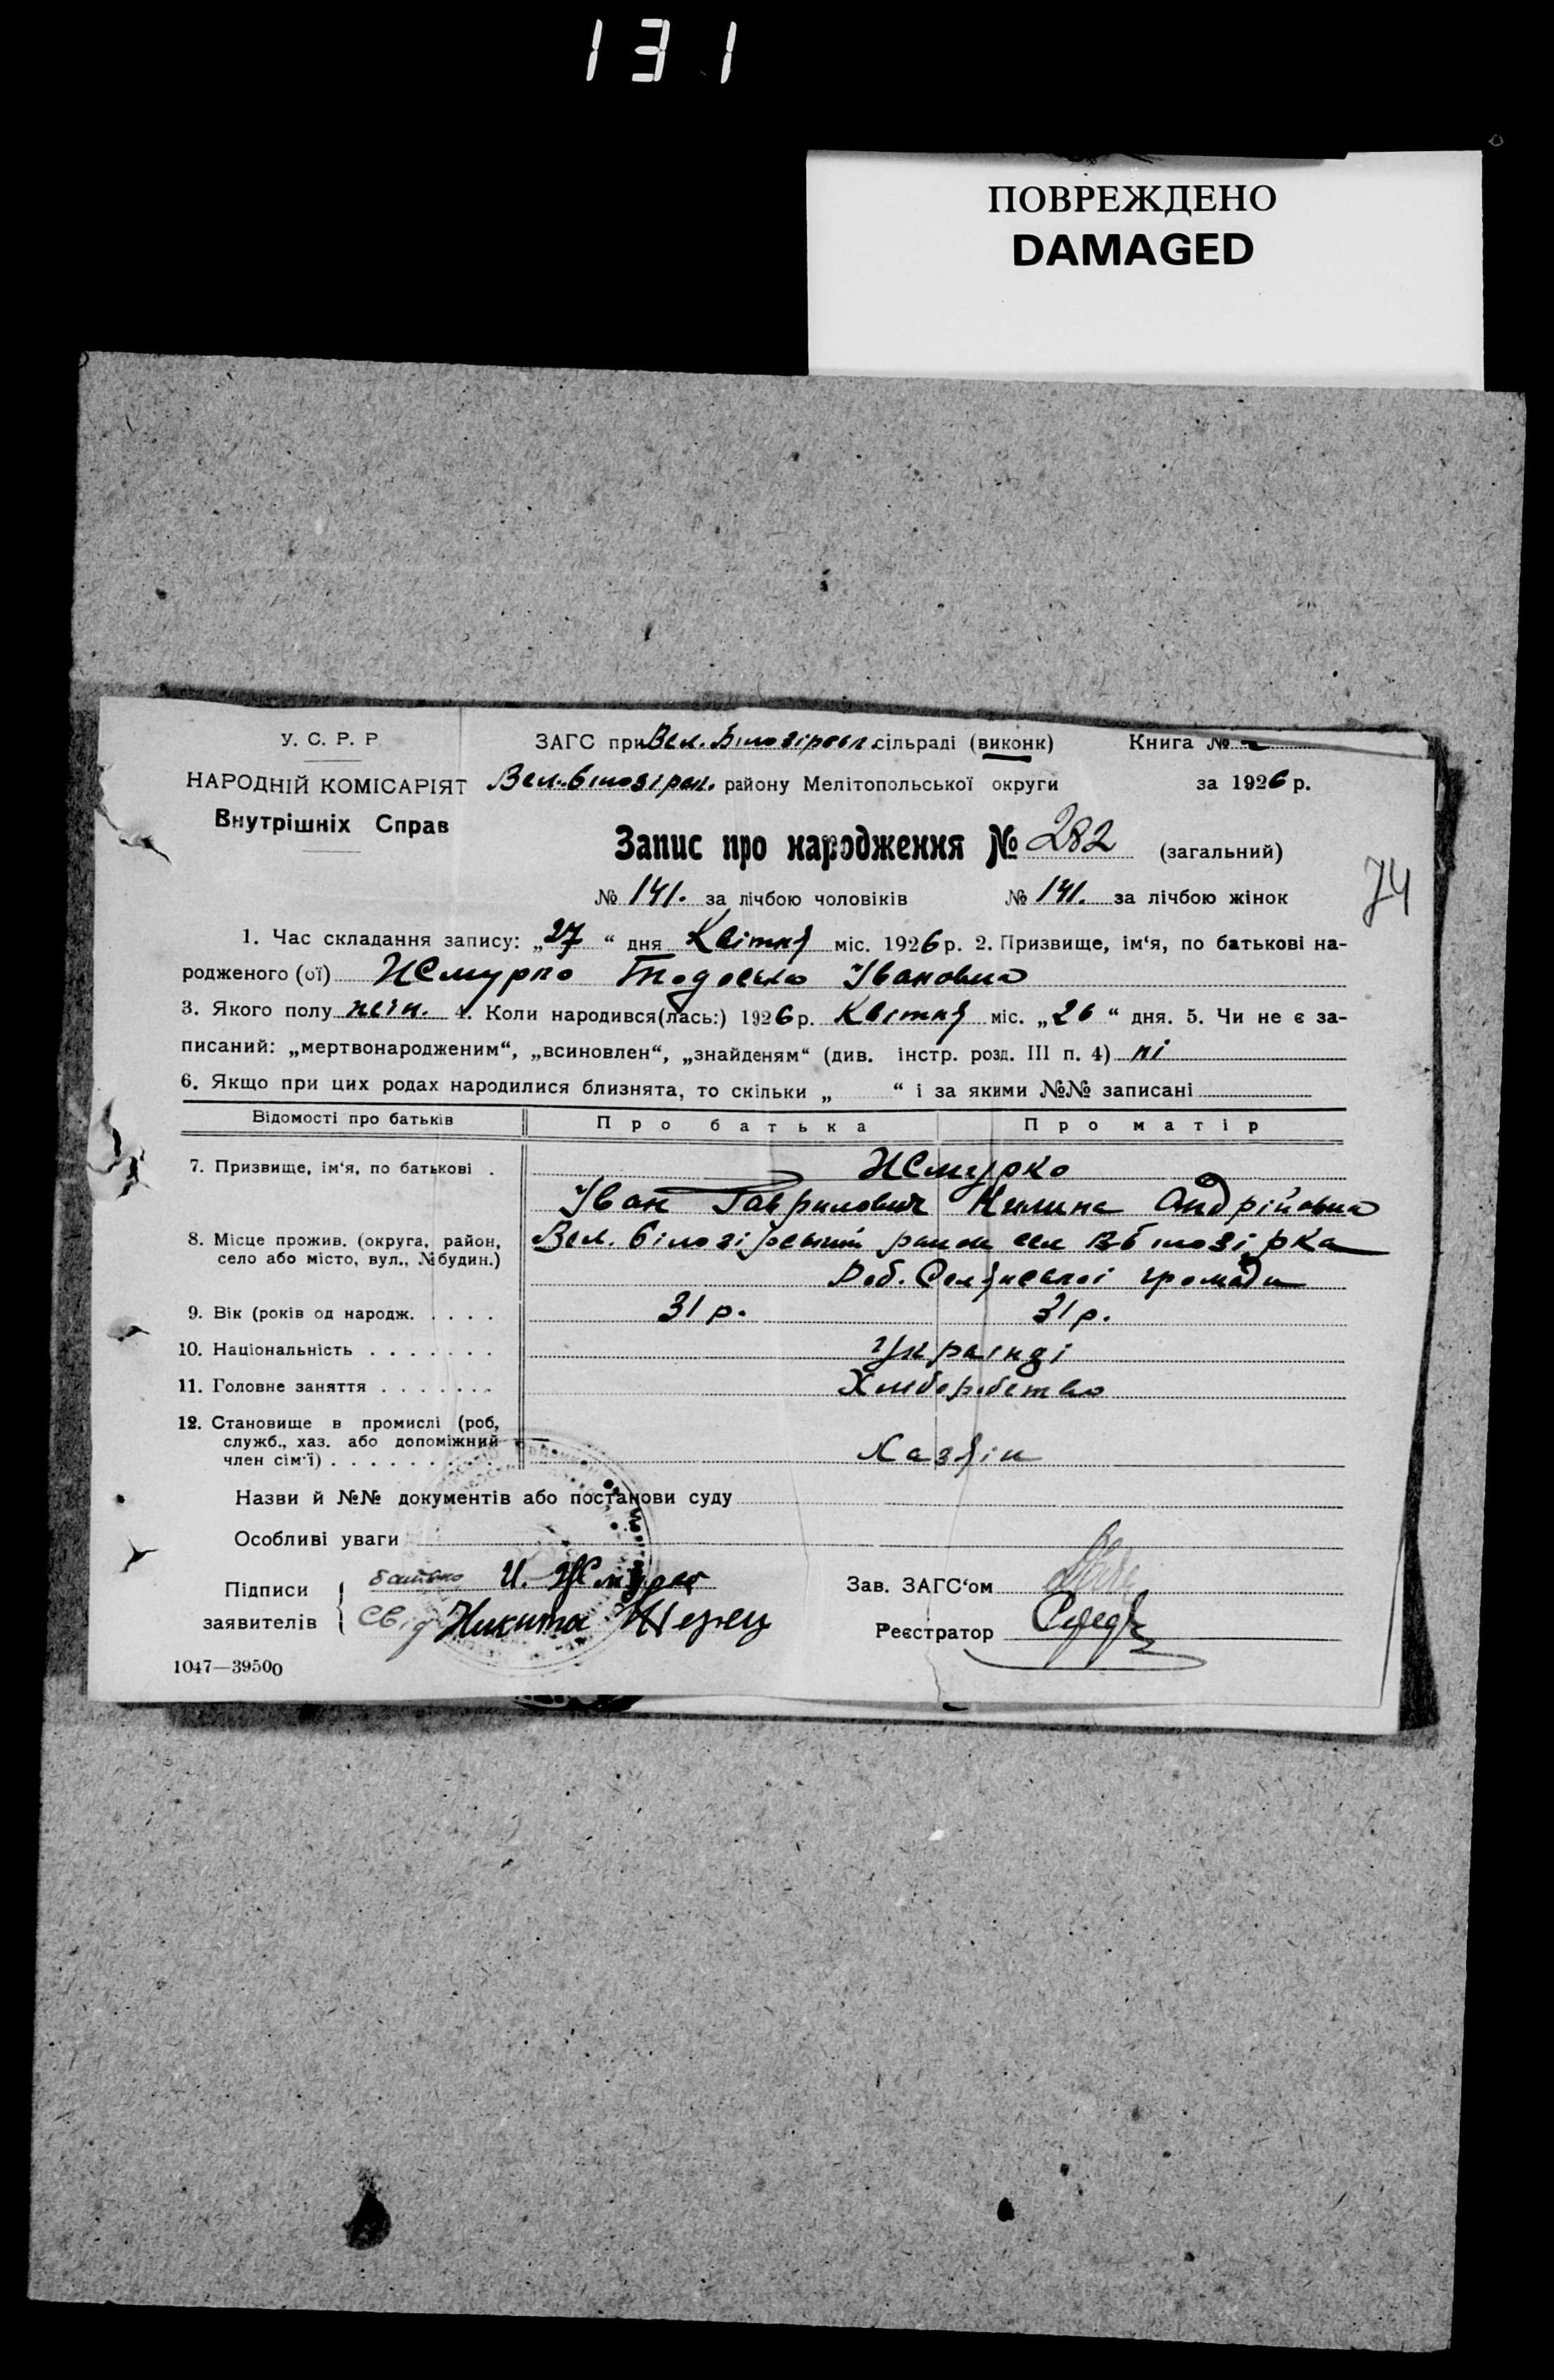 131
ПОВРЕЖДЕНО
DAMAGED
У. С. Р. Р
НАРОДНІЙ КОМІСАРІЯТ
Внутрішніх Справ
ЗАГС при Вел. Білозірськ. сільраді (виконк)
Книга №
Вел. Білозірск. району Мелітопольської округи
за 1926 р.
Запис про народження № 282 (загальний)
№ 141. за лічбою чоловіків № 141. за лічбою жінок
74
1. Час складання запису: „27“ дня Квітня міс. 1926 р. 2. Призвище, ім‘я, по батькові на-
родженого (ої) Жмурко Тодоська Івановна
3. Якого полу жін. 4. Коли народився(лась:) 1926 р. Квітня міс. „26“ дня. 5. Чи не є за-
писаний: „мертвонародженим“, „всиновлен“, „знайденям“ (див. інстр. розд. III п. 4) ні
6. Якщо при цих родах народилися близнята, то скільки „ “ і за якими №№ записані
Відомості про батьків Про батька Про матір
7. Призвище, ім‘я, по батькові . Жмурко
Іван Гаврилович Килина Андрійовна
8. Місце прожив. (округа, район,
село або місто, вул., № будин.)
Вел. Білозірський район сел ВБілозірка
Селянської громади
9. Вік (років од народж. . . . . 31 р. 31 р.
10. Національність . . . . . . . Українці
11. Головне заняття . . . . . . . Хліборобство
12. Становище в промислі (роб,
служб., хаз. або допоміжний
член сім‘ї) . . . . . . . . . Хазяїн
Назви й №№ документів або постанови суду
Особливі уваги
Підписи
заявителів
батько И. Жмурко
Свід Никита
Зав. ЗАГС‘ом
Реєстратор
1047—39500